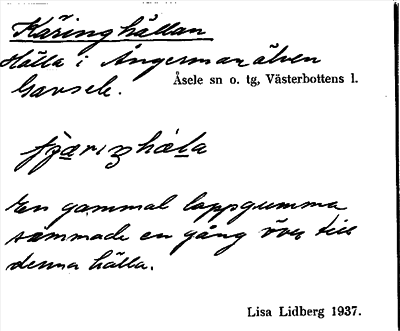 Käringhällan
Hälla i Ångermanälven
Gavsele.
Åsele sn o. tg, Västerbottens l.
En gammal lappgumma
simmade en gång över till
denna hälla.
Lisa Lidberg 1937.